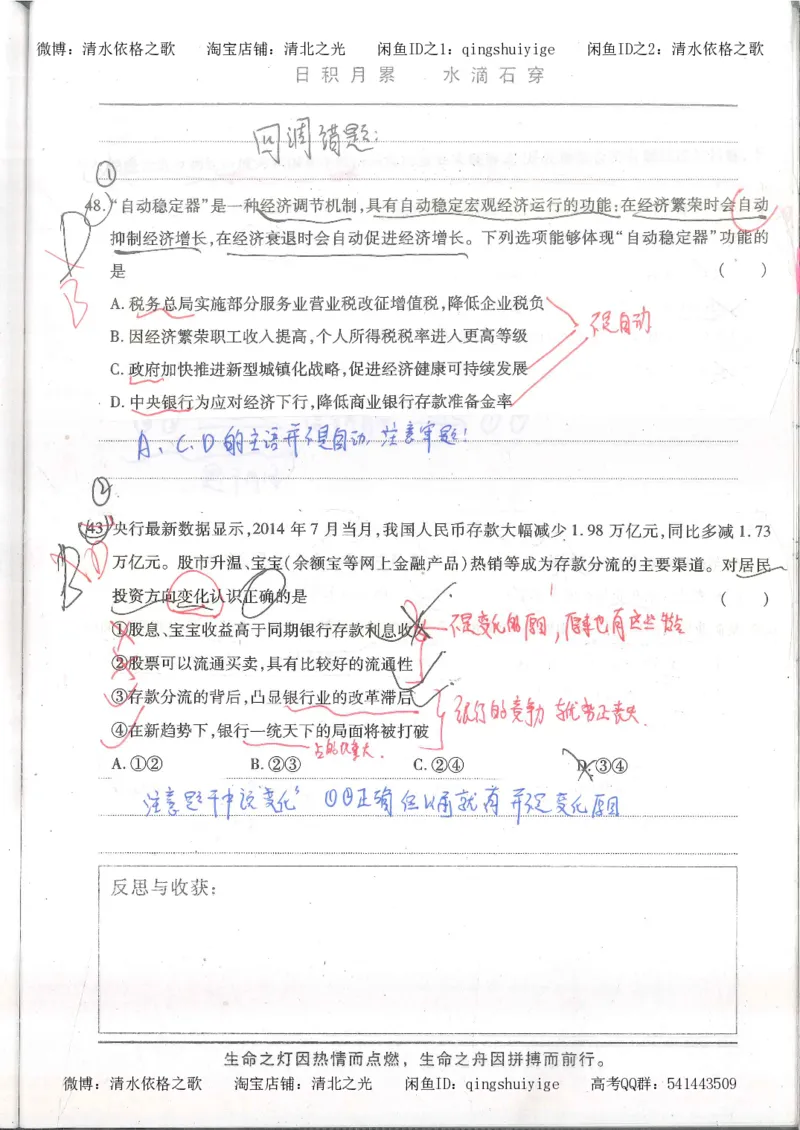 微博：清水依格之歌 淘宝店铺：清北之光 闲鱼ID之1：qingshuiyige 闲鱼ID之2：清水依格之歌
日积月累 水滴石穿
四调错题：
①
48.“自动稳定器”是一种经济调节机制,具有自动稳定宏观经济运行的功能:在经济繁荣时会自动
抑制经济增长,在经济衰退时会自动促进经济增长。下列选项能够体现“自动稳定器”功能的
是 ( )
D
B
A. 税务总局实施部分服务业营业税改征增值税,降低企业税负
不是自动
B. 因经济繁荣职工收入提高,个人所得税税率进入更高等级
C. 政府加快推进新型城镇化战略,促进经济健康可持续发展
D. 中央银行为应对经济下行,降低商业银行存款准备金率
A、C、D的主语并不是自动，注意审题！
②
43.央行最新数据显示,2014年7月当月,我国人民币存款大幅减少1.98万亿元,同比多减1.73
万亿元。股市升温、宝宝(余额宝等网上金融产品)热销等成为存款分流的主要渠道。对居民
投资方向变化认识正确的是 ( )
B D
①股息、宝宝收益高于同期银行存款利息收入
不是变化的原因，原来也有这些特征
②股票可以流通买卖,具有比较好的流通性
③存款分流的背后,凸显银行业的改革滞后
银行的竞争力 优势正丧失.
④在新趋势下,银行一统天下的局面将被打破
占的比重大.
A.①② B.②③ C.②④ D.③④
注意题干中说“变化” ①②正确 但以前就有 并不是变化原因
反思与收获：
生命之灯因热情而点燃，生命之舟因拼搏而前行。
微博：清水依格之歌 淘宝店铺：清北之光 闲鱼ID：qingshuiyige 高考QQ群：541443509